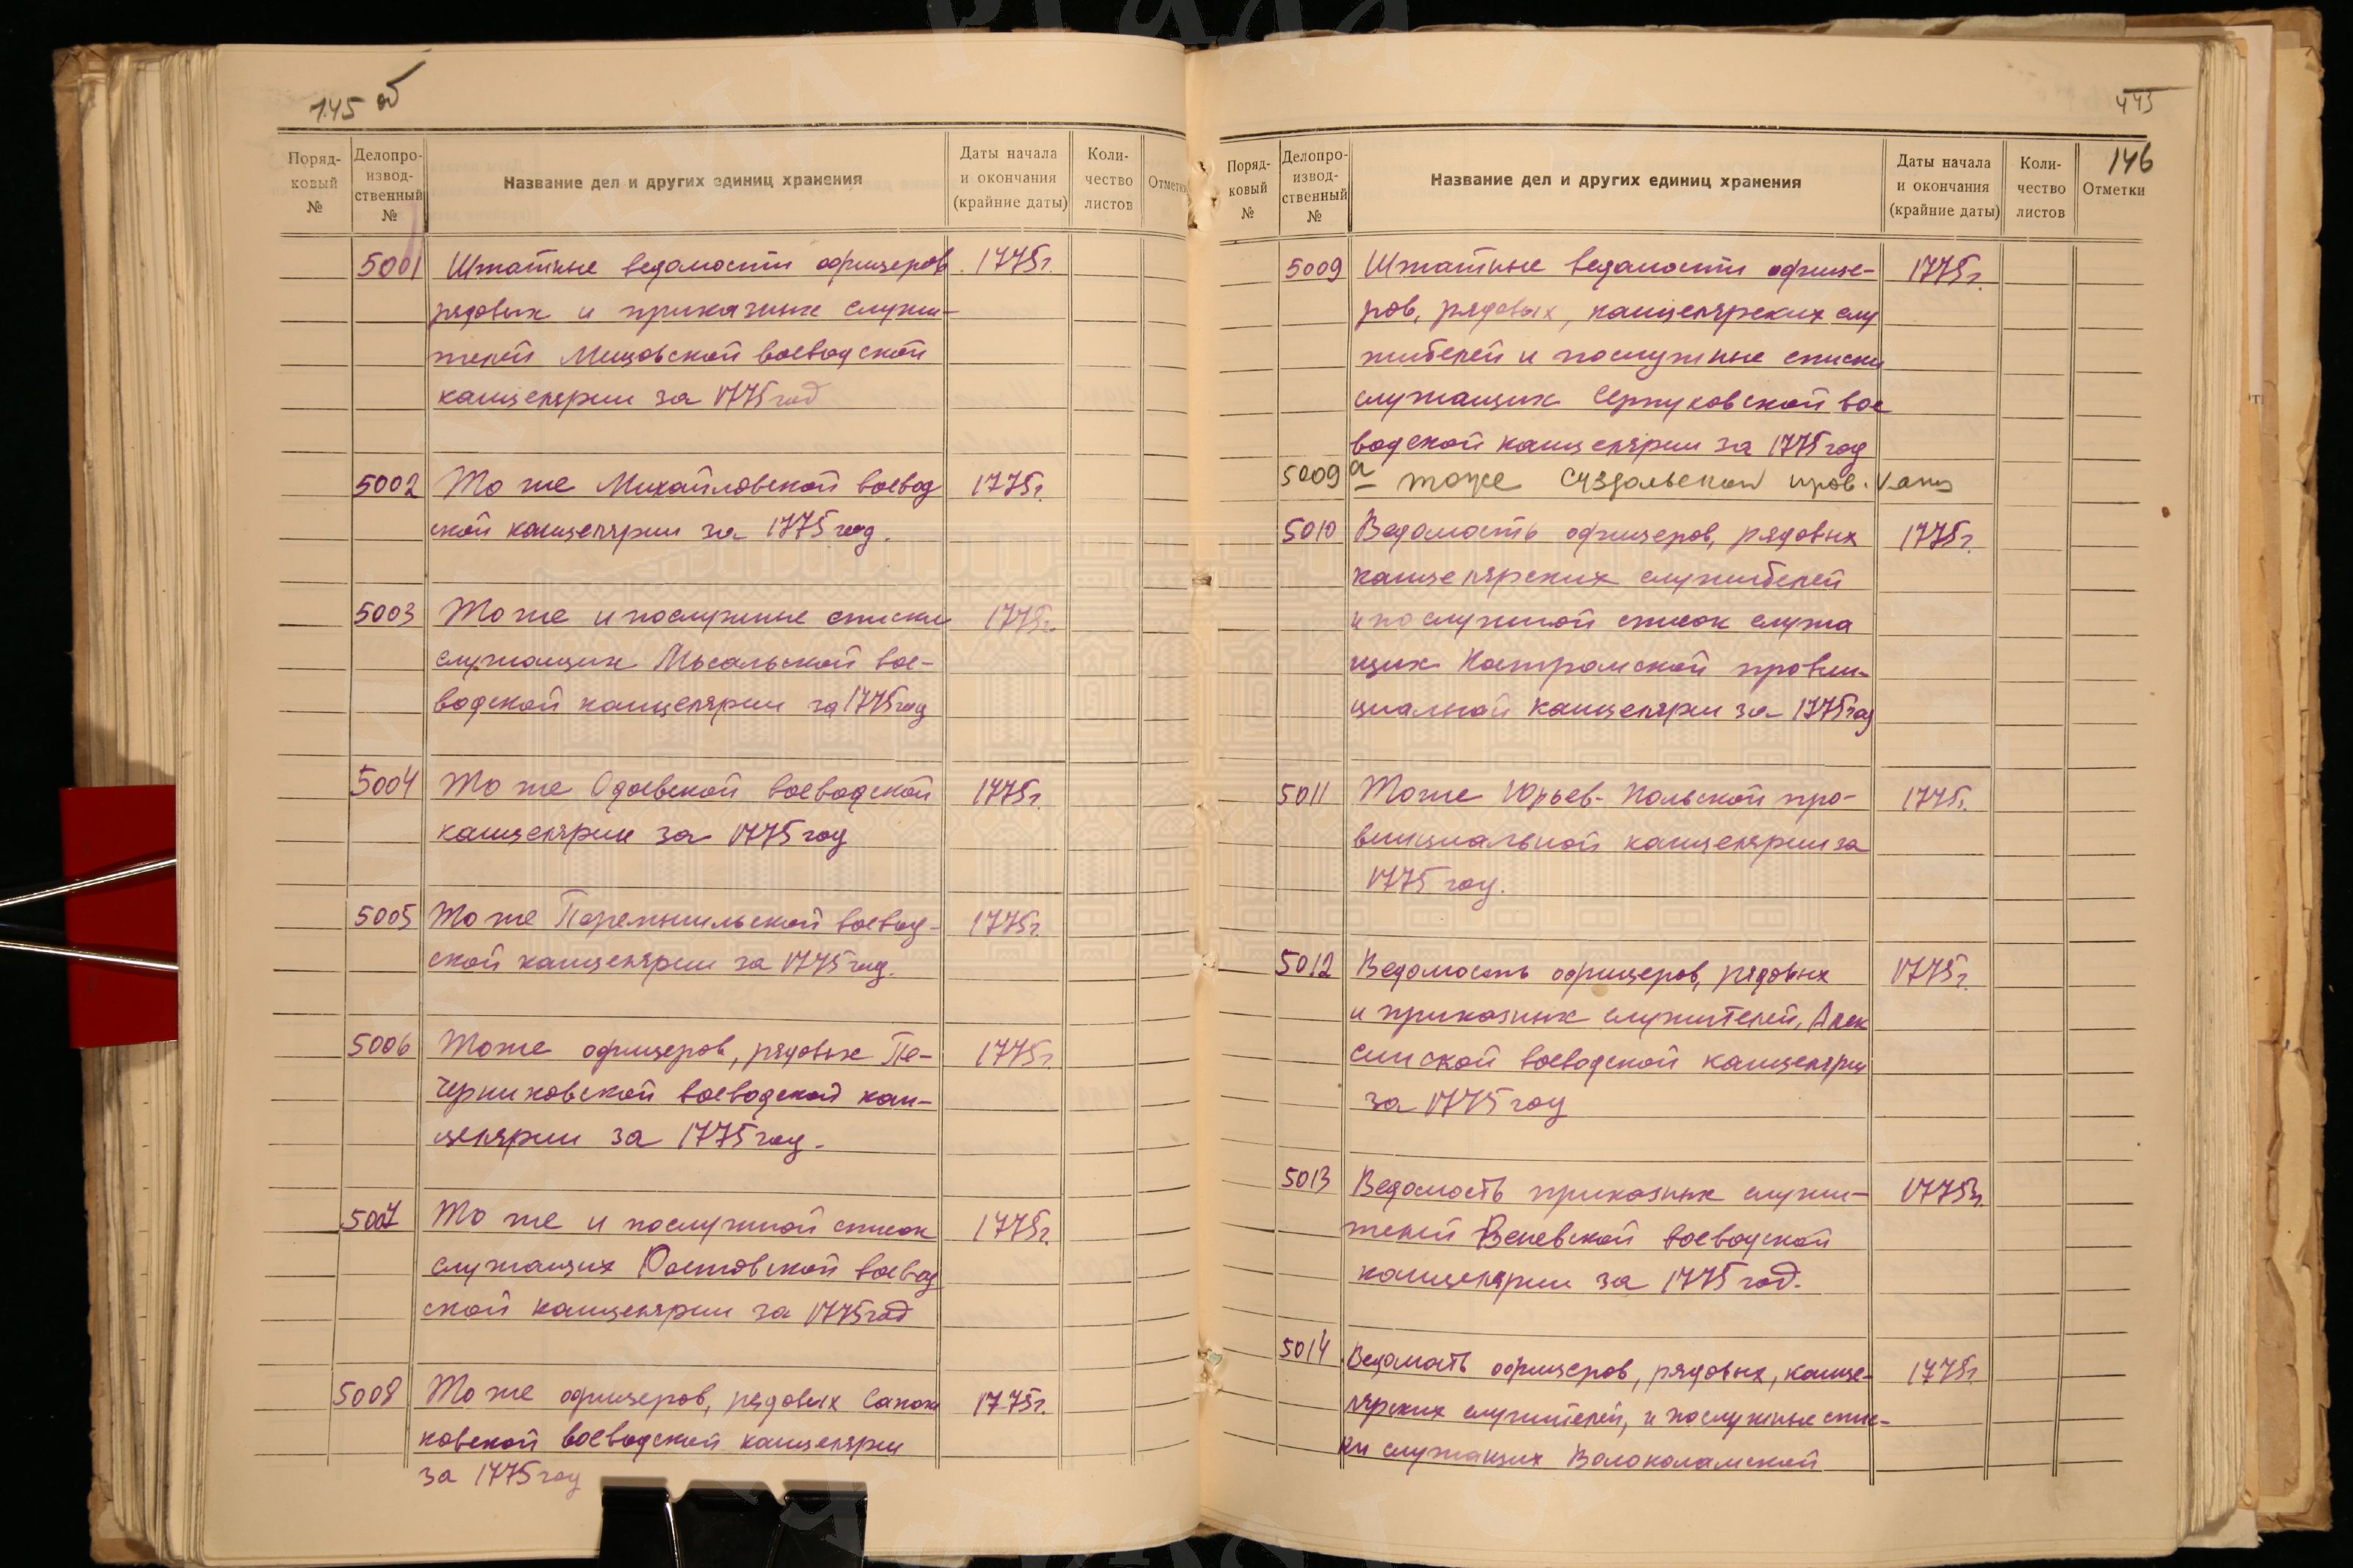 145 об
Поряд-
ковый
№
Делопро-
извод-
ственный
№
Название дел и других единиц хранения
Даты начала
и окончания
(крайние даты)
Коли-
чество
листов
Отметки
5001 Штатные ведомости офицеров 1775г.
рядовых и приказных служи-
телей Мещовской воеводской
канцелярии за 1775 год
5002 То же Михайловской воевод 1775г.
ской канцелярии за 1775 год.
5003 То же и послужные списки 1775г.
служащих Мосальской вое-
водской канцелярии за 1775 год
5004 То же Одоевской воеводской 1775г.
канцелярии за 1775 год
5005 То же Перемышльской воевод- 1775г.
ской канцелярии за 1775 год.
5006 То же офицеров, рядовых Пе- 1775г.
черниковской воеводской кан-
целярии за 1775 год.
5007 То же и послужной список 1775г.
служащих Ростовской воевод
ской канцелярии за 1775 год
5008 То же офицеров, рядовых Сапож 1775г.
ковской воеводской канцелярии
за 1775 год
445
146
Поряд-
ковый
№
Делопро-
извод-
ственный
№
Название дел и других единиц хранения
Даты начала
и окончания
(крайние даты)
Коли-
чество
листов
Отметки
5009 Штатные ведомости офице- 1775г.
ров, рядовых, канцелярских слу
жителей и послужные списки
служащих Серпуховской вое
водской канцелярии за 1775 год
5009а тоже Суздальской пров. канц
5010 Ведомость офицеров, рядовых 1775г.
канцелярских служителей
и послужной список служа
щих Костромской провин-
циальной канцелярии за 1775 год
5011 То же Юрьев-Польской про- 1775г.
винциальной канцелярии за
1775 год.
5012 Ведомость офицеров, рядовых 1775г.
и приказных служителей, Алек
синской воеводской канцелярии
за 1775 год
5013 Ведомость приказных служи- 1775г.
телей Веневской воеводской
канцелярии за 1775 год.
5014 Ведомость офицеров, рядовых, канце- 1775г.
лярских служителей, и послужные спис-
ки служащих Волоколамской